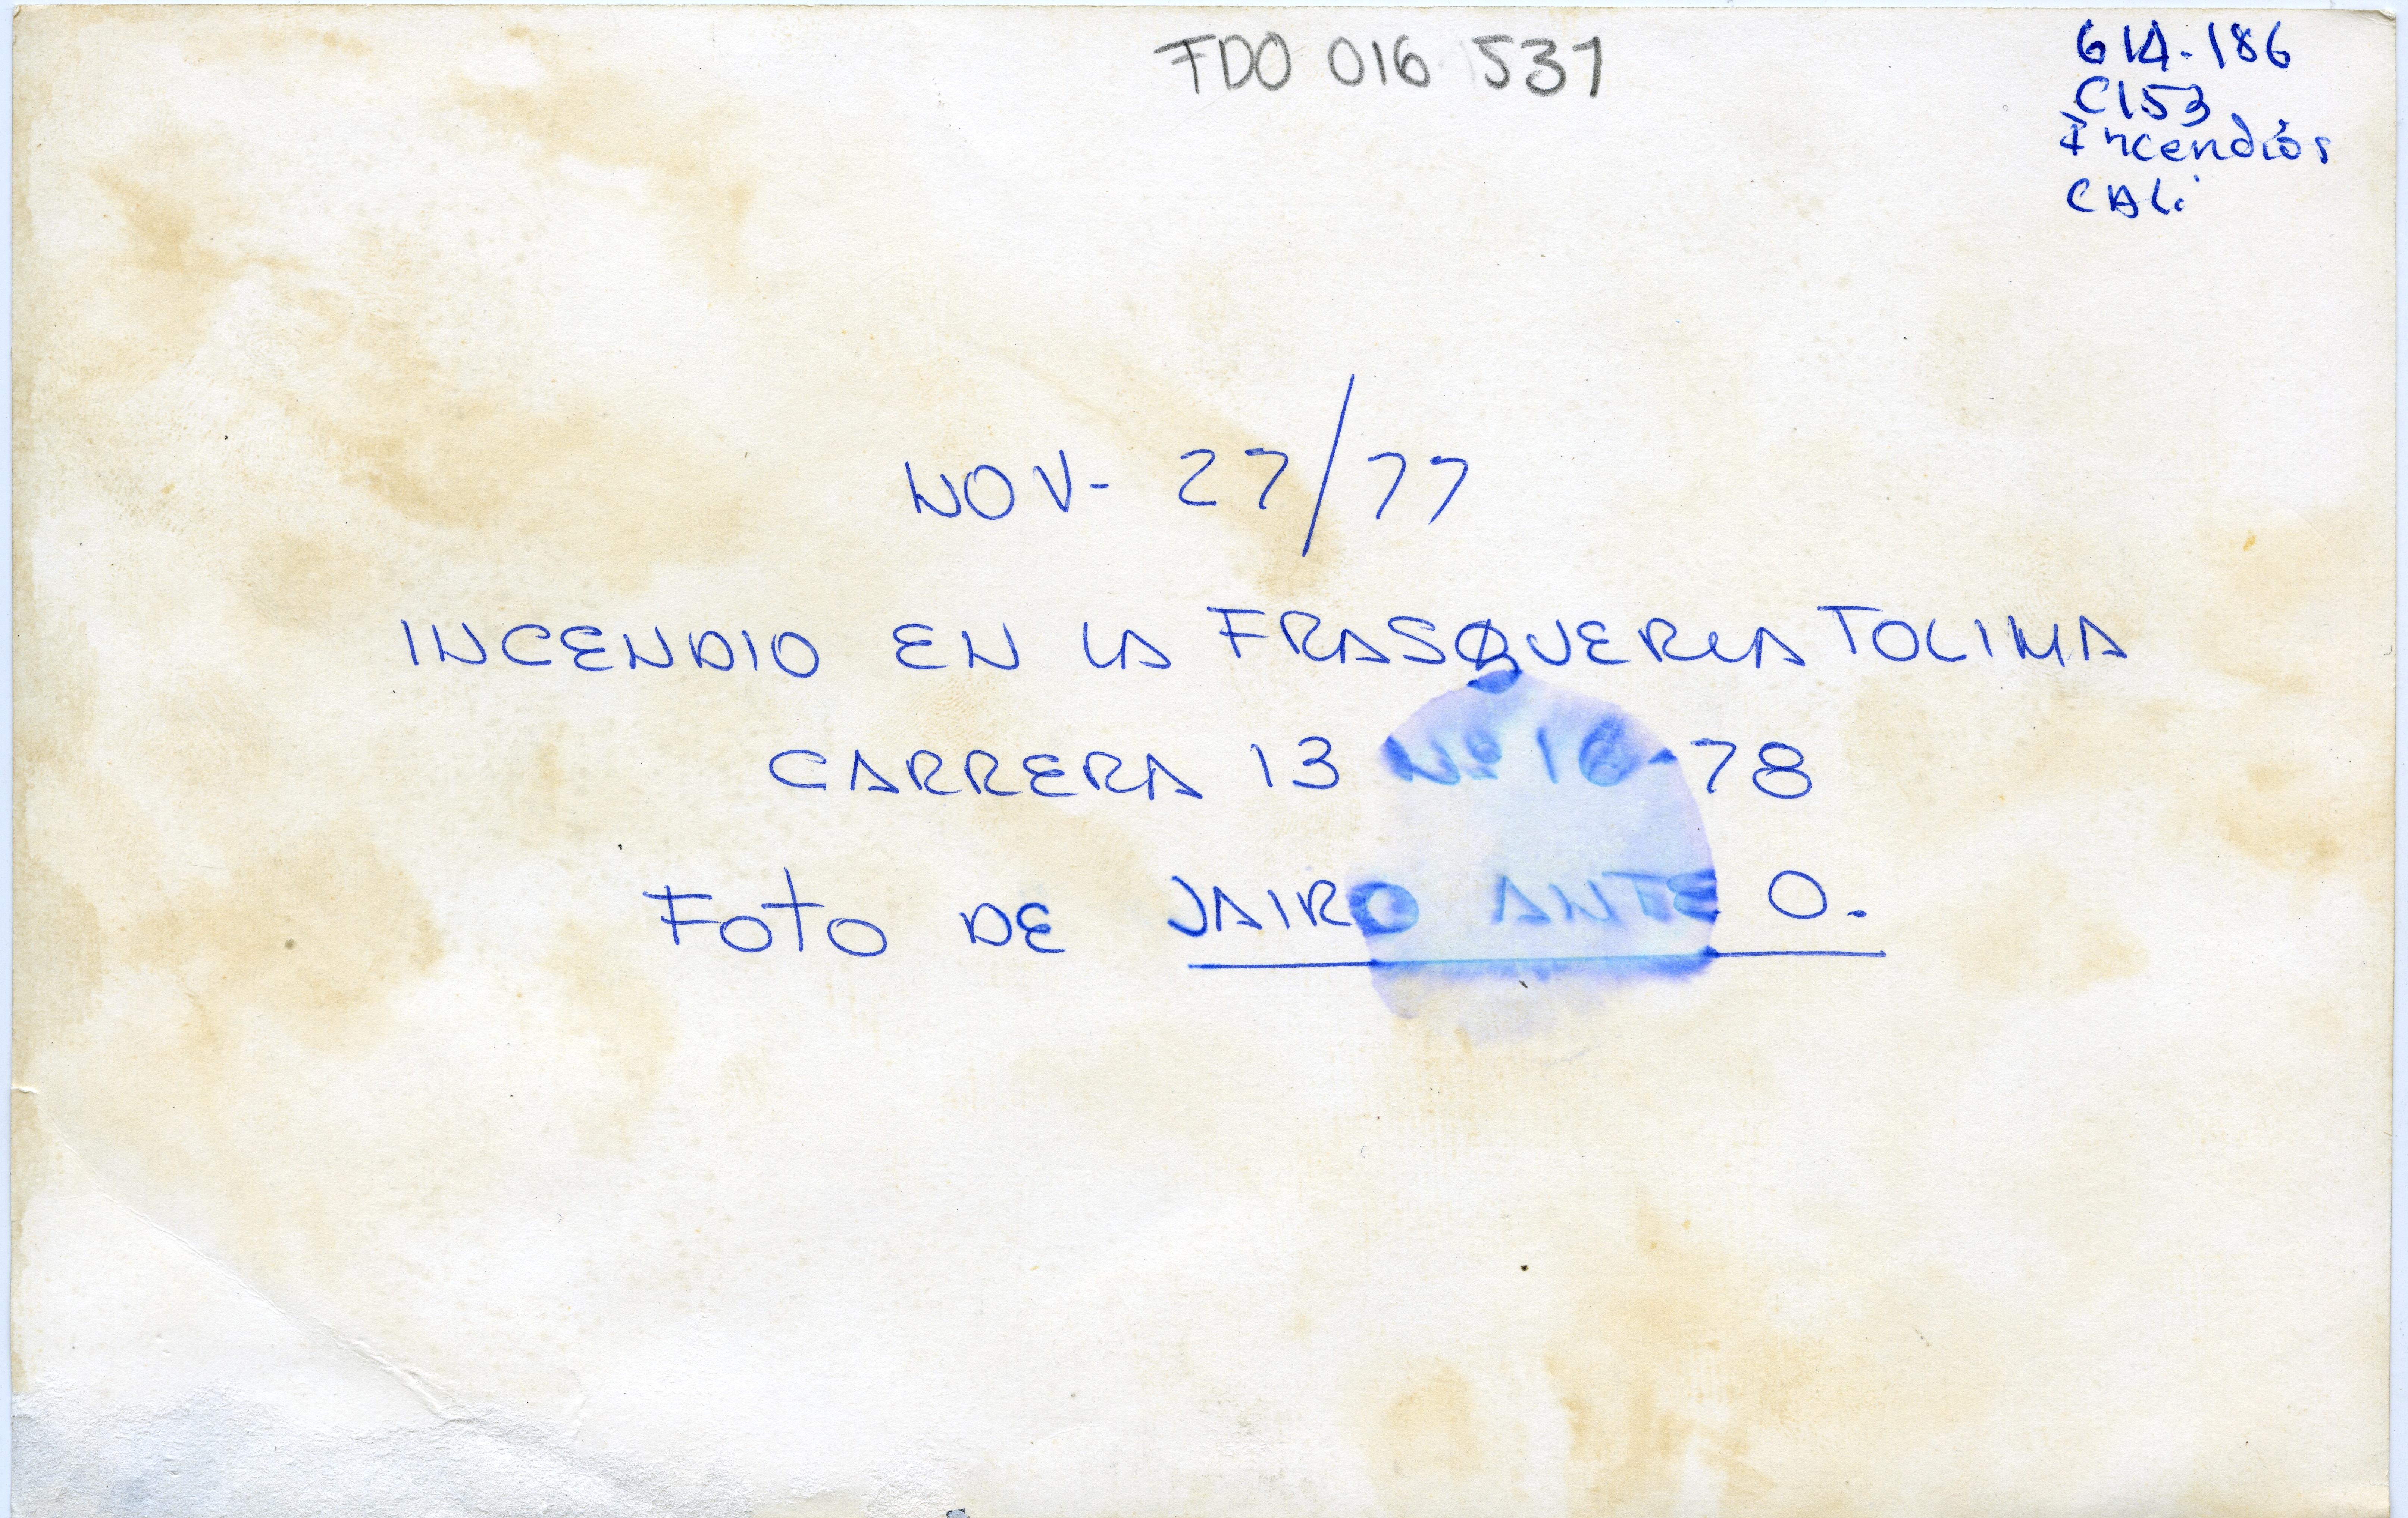 FDO 016 1537
614-186
C153
Incendios
CALi
NOV- 27/77
INCENDIO EN LA FRASQUERIA TOLIMA
CARRERA 13 Nº 16-78
Foto DE JAIRO ANTE O.